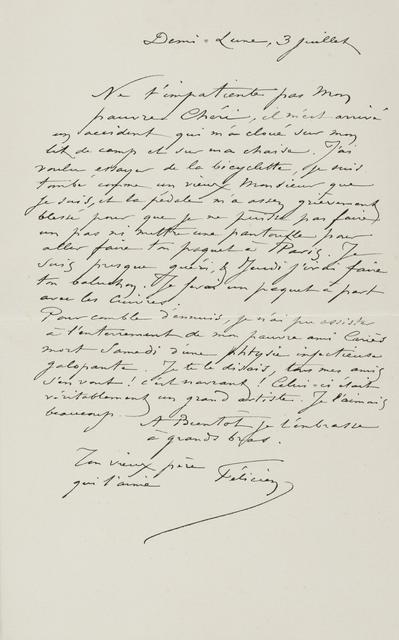 Demi-Lune, 3 juillet
Ne t'impatiente pas Mon
pauvre Chéri, il m'est arrivé
un accident qui m'a cloué sur mon
lit de camp et sur ma chaise. J'ai
voulu essayer de la bicyclette, je suis
tombé comme un vieux Monsieur que
je suis, et la pédale m'a assez grièvement
blessé pour que je ne puisse pas faire
un pas ni mettre une pantoufle pour
aller faire ton paquet à Paris. Je
suis presque guéri, & Jeudi j'irai faire
ton baluchon. Je ferai un paquet à part
avec les Cuivres.
Pour comble d'ennuis, je n'ai pu assister
à l'enterrement de mon pauvre ami Carriès
mort Samedi d'une phtysie infectieuse
galopante. Je te le disais, tous mes amis
s'en vont ! c'est navrant ! Celui-ci était
véritablement un grand artiste. Je l'aimais
beaucoup.
A Bientôt je t'embrasse
à grands bras.
Ton vieux père
qui t'aime
Félicien